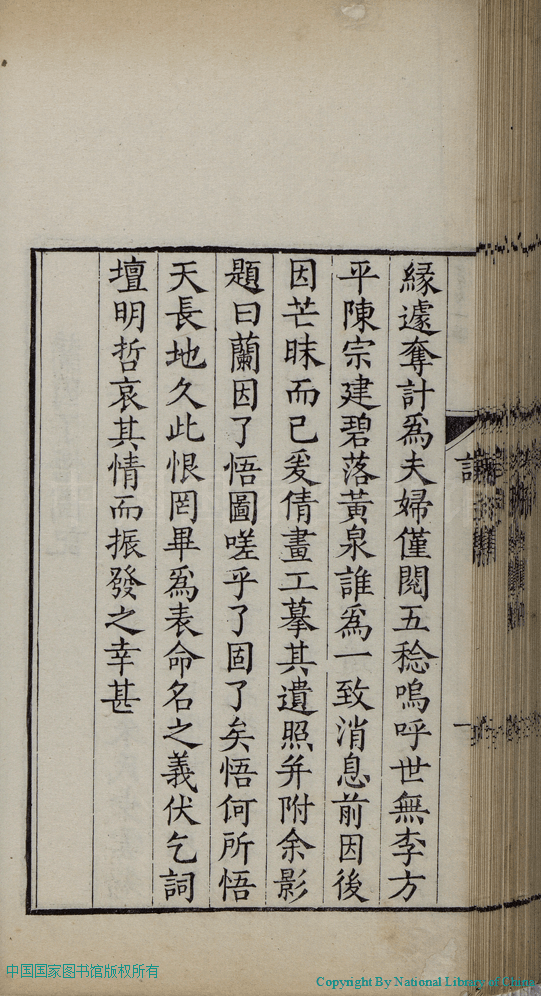 緣遽奪計爲夫婦僅閱五稔嗚呼世無李方
平陳宗建碧落黃泉誰爲一致消息前因後
因芒昧而已爰倩畫工摹其遺照并附余影
題曰蘭因了悟圖嗟乎了固了矣悟何所悟
天長地久此恨罔畢爲表命名之義伏乞詞
壇明哲哀其情而振發之幸甚
中国国家图书馆版权所有
Copyright By National Library of China